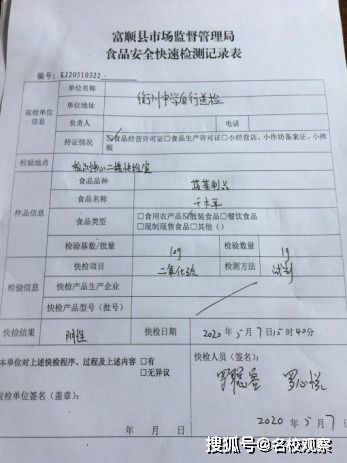 富顺县市场监督管理局
食品安全快速检测记录表
编号:KJ20510322
被检单位信息
单位名称
单位地址
自行送检
负责人
电话
持证情况
☑食品经营许可证□食品生产许可证□小经营店、小作坊备案证、小摊贩
检验地点
样品信息
食品品种
蔬菜制品
食品名称
食品类型
□食用农产品☑散装食品□餐饮食品
□现制现售食品□其他()
检验信息
检验基数/批量
10g
检验数量
1g
快检项目
二氧化硫
检测方法
快检产品生产企业
快检产品型号(批号)
快检结果
阴性
快检日期
2020年5月7日15时40分
本单位对上述快检程序、过程及上述内容 □有
□无异议
快检人员(签名):
被检单位签名(盖章):
年 月 日
2020年5月7日
搜狐号@名校观察